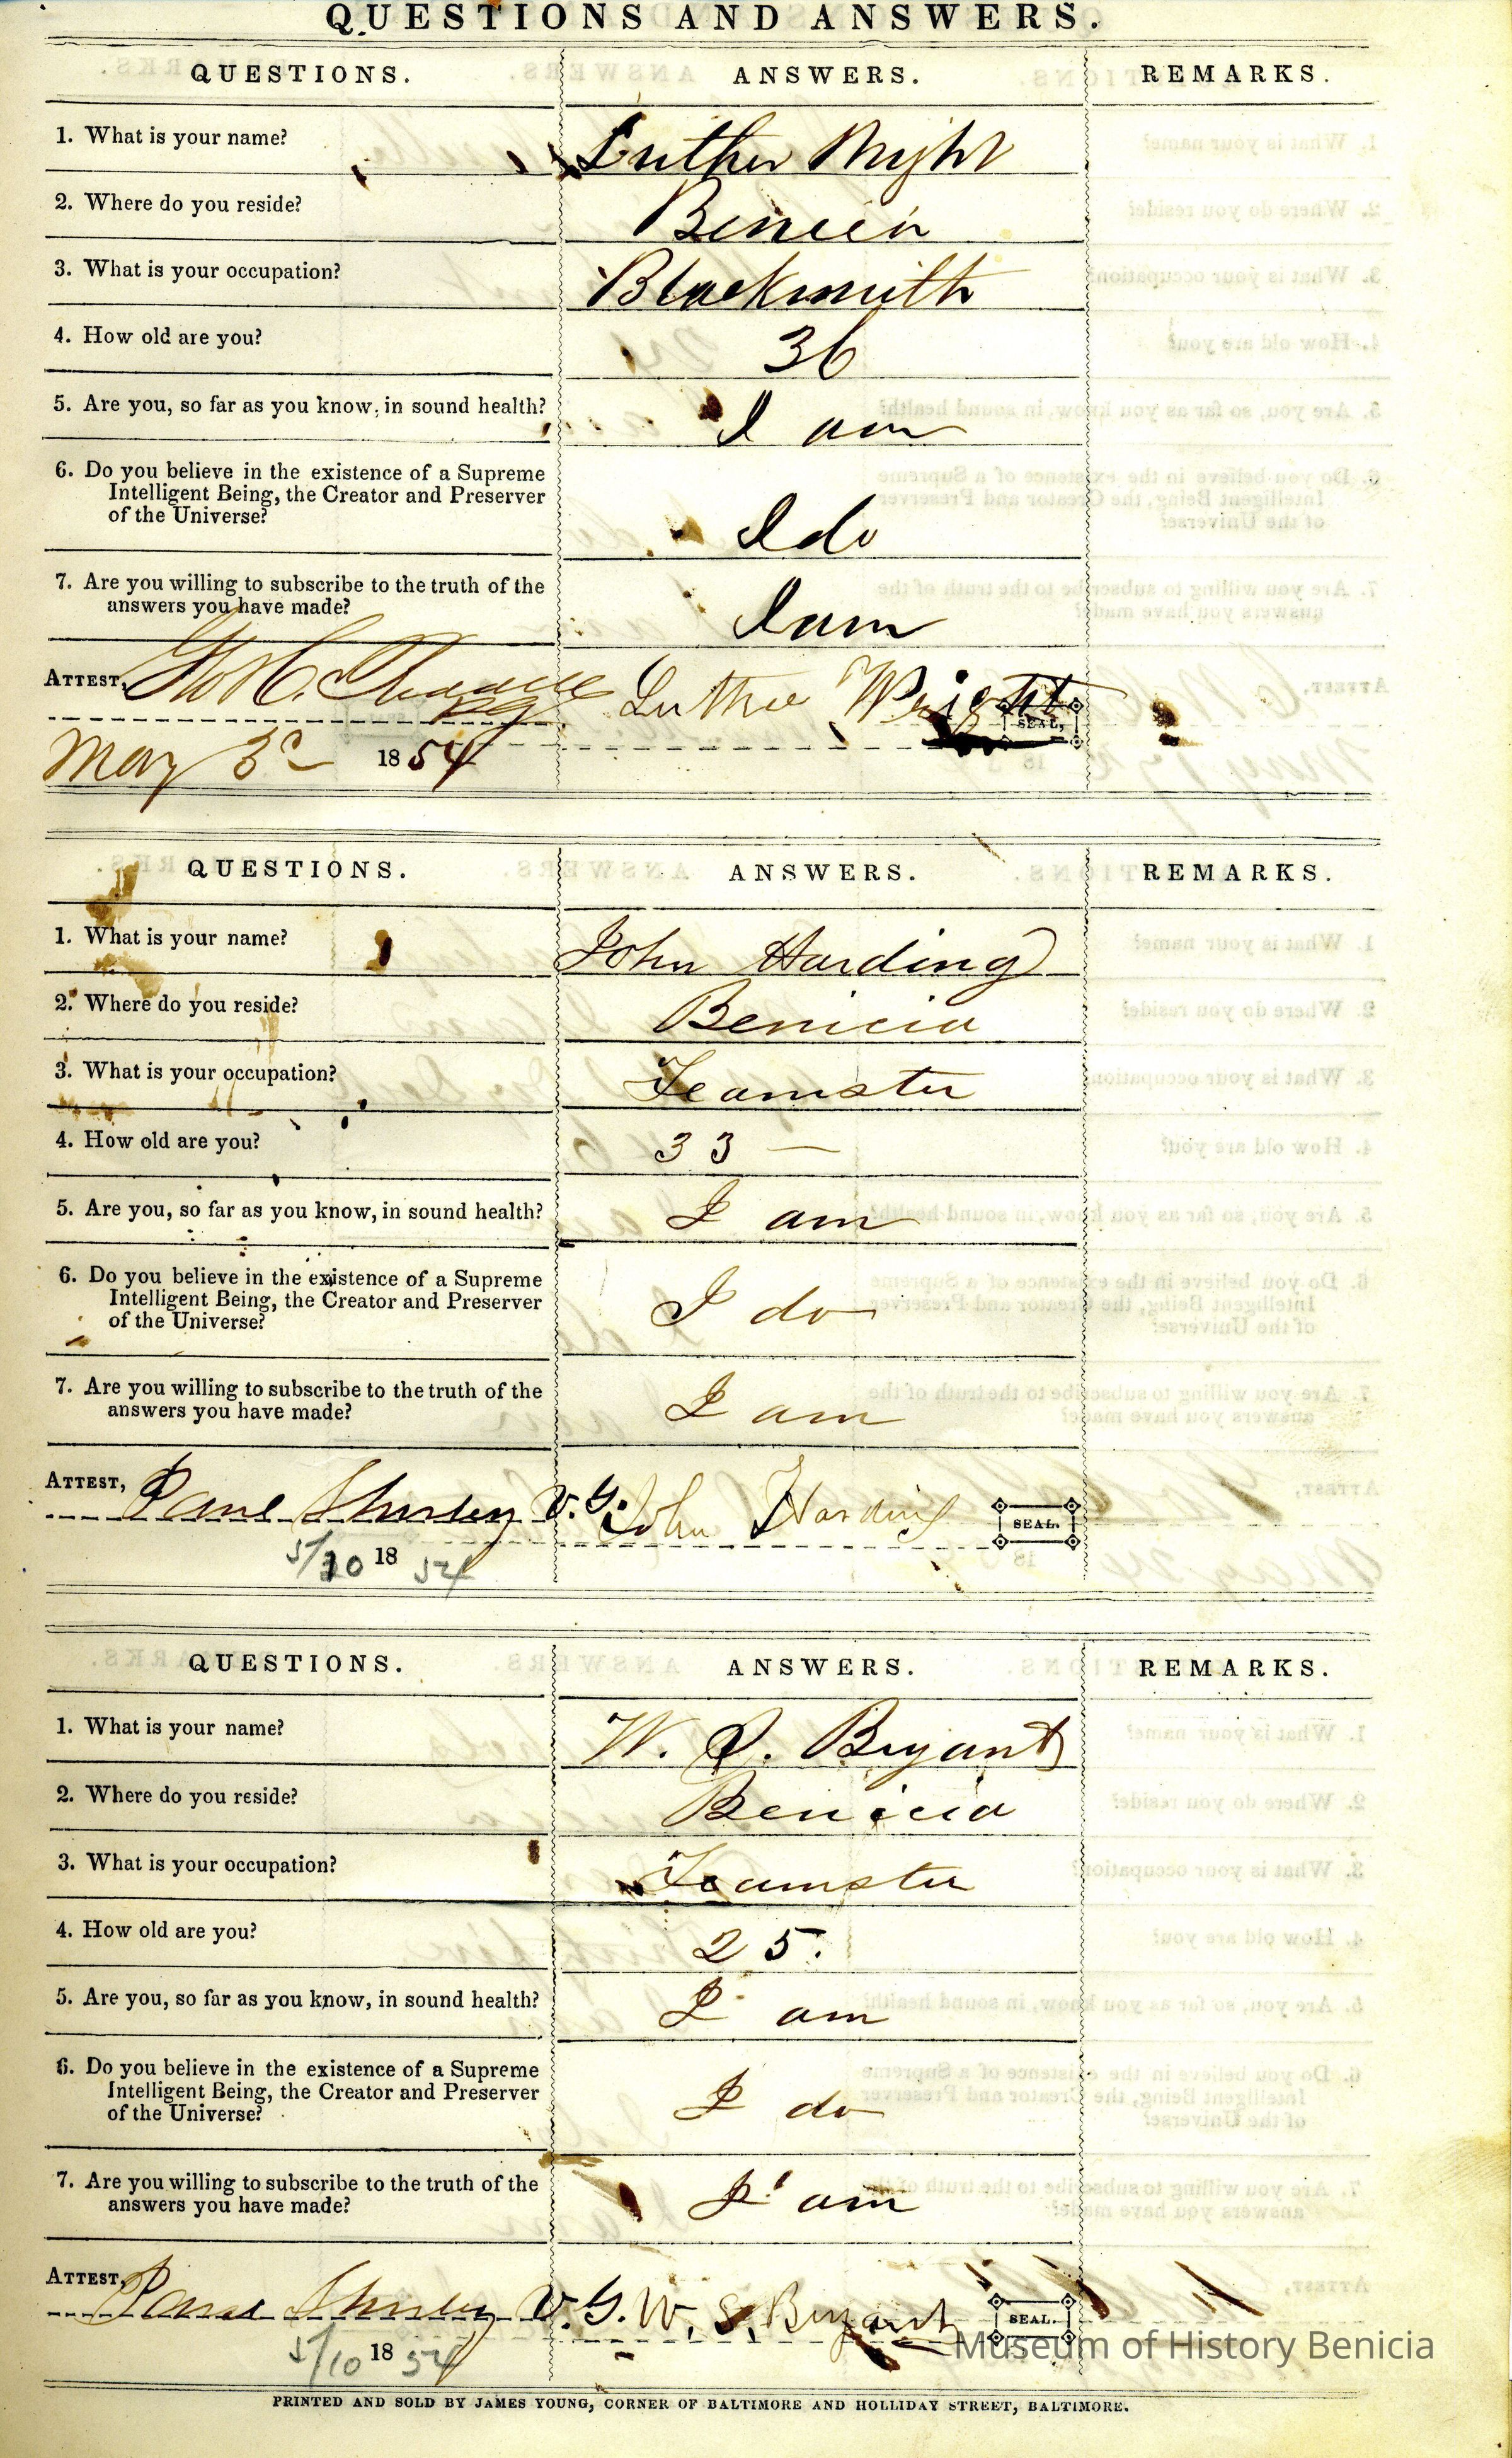 QUESTIONS AND ANSWERS.
QUESTIONS. ANSWERS. REMARKS.
1. What is your name? Luther Wright
2. Where do you reside? Benicia
3. What is your occupation? Blacksmith
4. How old are you? 36
5. Are you, so far as you know, in sound health? I am
6. Do you believe in the existence of a Supreme
Intelligent Being, the Creator and Preserver
of the Universe? I do
7. Are you willing to subscribe to the truth of the
answers you have made? I am
ATTEST, Luther Wright SEAL,
May 3d 1854
QUESTIONS. ANSWERS. REMARKS.
1. What is your name? John Harding
2. Where do you reside? Benicia
3. What is your occupation? Teamster
4. How old are you? 33 —
5. Are you, so far as you know, in sound health? I am
6. Do you believe in the existence of a Supreme
Intelligent Being, the Creator and Preserver
of the Universe? I do
7. Are you willing to subscribe to the truth of the
answers you have made? I am
ATTEST, Paul Shirley V.G. John Harding SEAL.
1854
QUESTIONS. ANSWERS. REMARKS.
1. What is your name? W. S. Bryant
2. Where do you reside? Benicia
3. What is your occupation? Teamster
4. How old are you? 25.
5. Are you, so far as you know, in sound health? I am
6. Do you believe in the existence of a Supreme
Intelligent Being, the Creator and Preserver
of the Universe? I do
7. Are you willing to subscribe to the truth of the
answers you have made? I am
ATTEST, Paul Shirley V.G. W. S. Bryant SEAL.
5/10 1854
Museum of History Benicia
PRINTED AND SOLD BY JAMES YOUNG, CORNER OF BALTIMORE AND HOLLIDAY STREET, BALTIMORE.